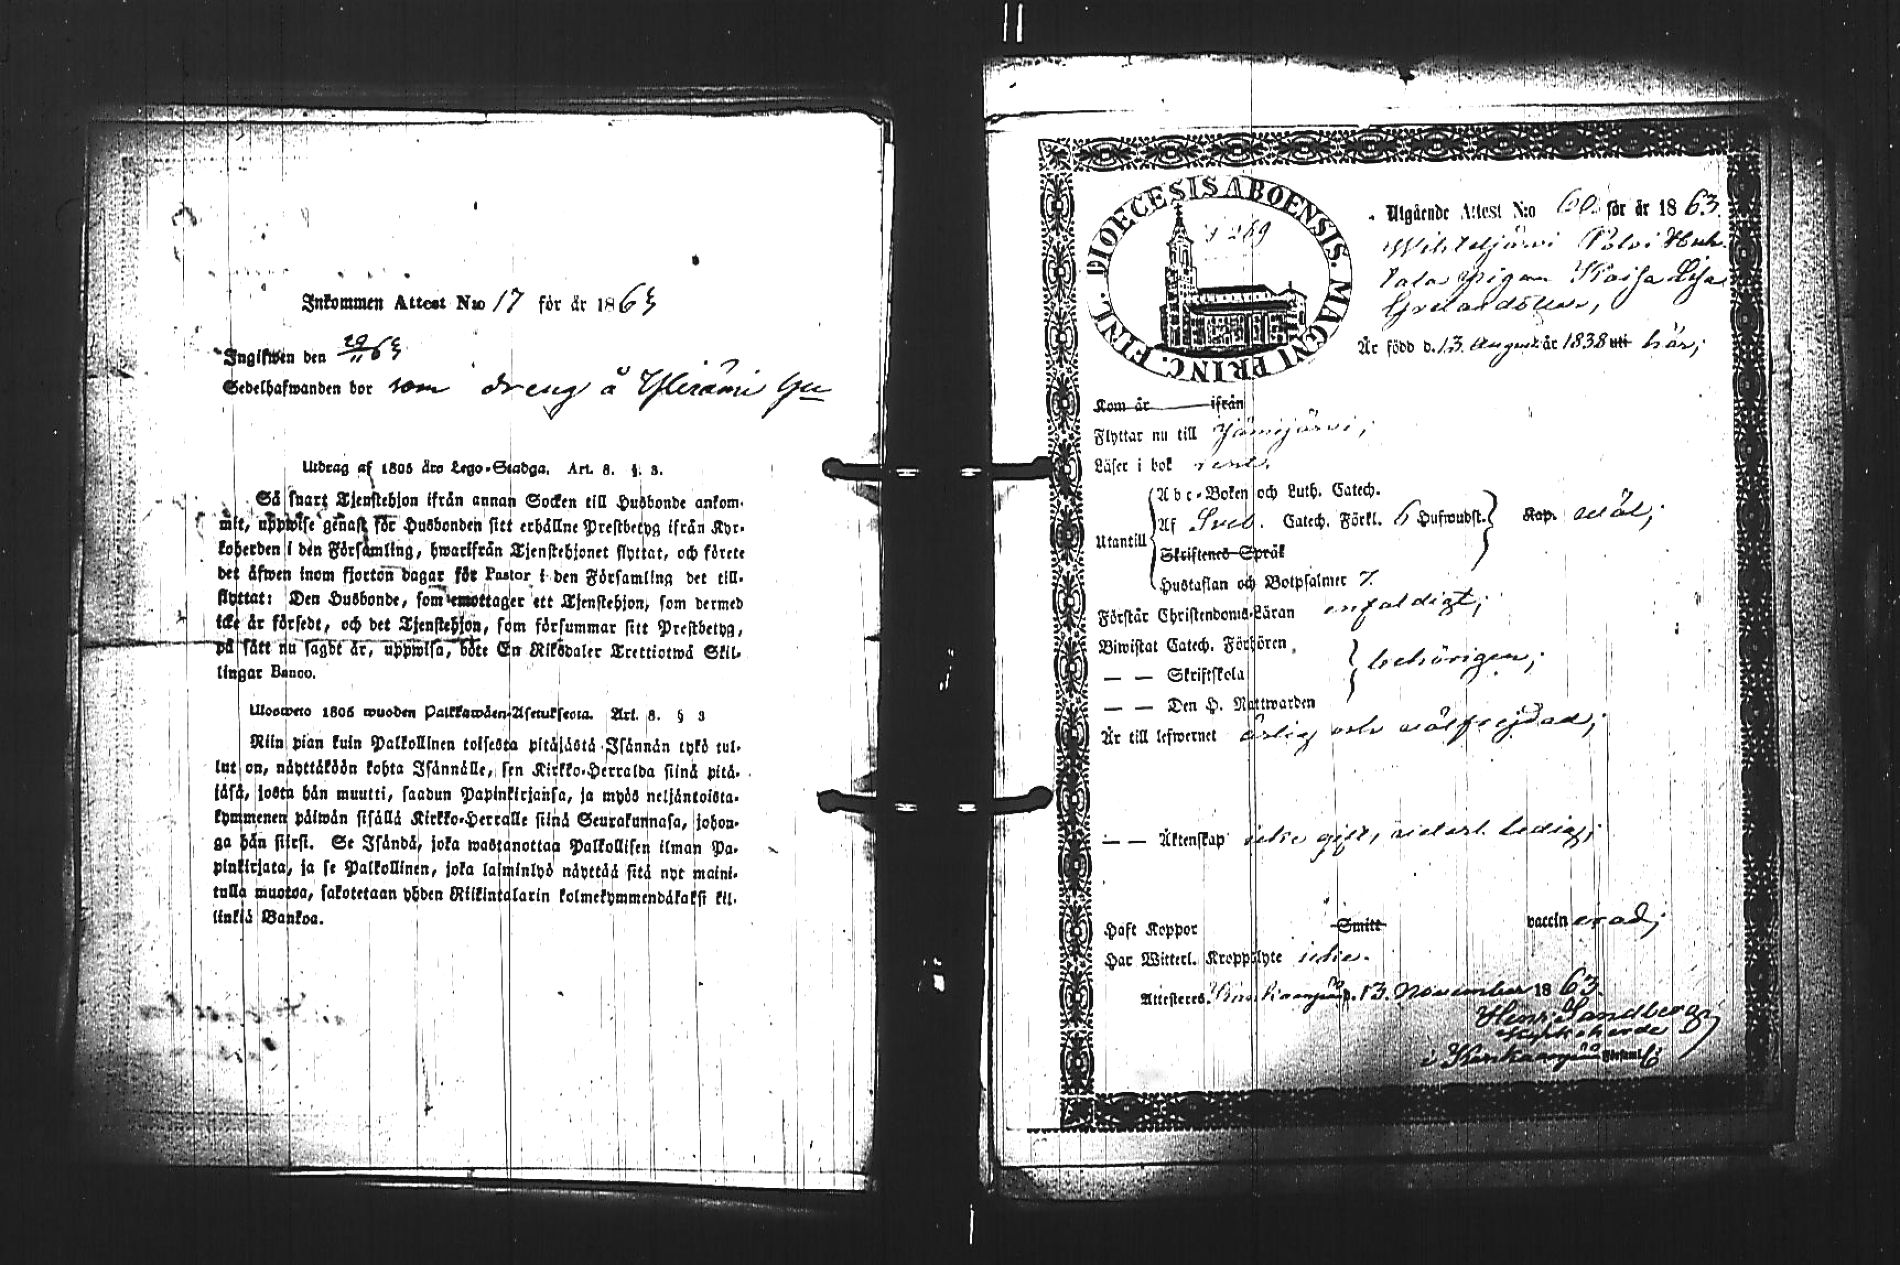 Inkommen Attest N:o 17 för år 1863
Ingifwen den 29/11 63
Sedelhafwanden bor som dreng å Ylirämi
Utdrag af 1805 års Lego-Stadga. Art. 8. §. 3.
Så snart Tjenstehjon ifrån annan Socken till Husbonde ankom-
mit, uppwise genast för Husbonden sitt erhållne Prestbetyg ifrån Kyr-
koherden i den Församling, hwarifrån Tjenstehjonet flyttat, och förete
det äfwen inom fjorton dagar för Pastor i den Församling det till-
flyttat: Den Husbonde, som emottager ett Tjenstehjon, som dermed
icke är försedt, och det Tjenstehjon, som försummar sitt Prestbetyg,
på sått nu sagdt är, uppwisa, böte En Riksdaler Trettiotwå Skil-
lingar Banco.
Uloswето 1805 wuoden Palkkawäen-Asetuksesta. Art. 8. § 3
Niin pian kuin Palkollinen toisesta pitäjästä Isännän tykö tul-
lut on, näyttäköön kohta Isännälle, sen Kirkko-Herralda siinä pitä-
jäsä, josta hän muutti, saadun Papinkirjansa, ja myös neljäntoista-
kymmenen päiwän sisällä Kirkko-Herralle siinä Seurakunnasa, johon-
ga hän siirsi. Se Isändä, joka wastanottaa Palkollisen ilman Pa-
pinkirjata, ja se Palkollinen, joka laiminlyö näyttää sitä nyt maini-
tulla muotoa, sakotetaan yhden Riikintalarin kolmekymmendäkaksi kil-
linkiä Bankoa.
DIOECESIS ABOENSIS. MAGNI PRINC. FINL.
269
Utgående Attest N:o 60 för år 1863.
Wihteljärvi Polvi Huh-
tala pigan Kaisa Lisa
Är född d. 13. August år 1838 uti här;
Kom år ifrån
Flyttar nu till Jämijärvi;
Läser i bok
Abc-Boken och Luth. Catech.
Utantill Af Sveb. Catech. Förkl. 6 Hufwudst. Kap. wäl;
Skriftenes Språk
Hustaflan och Botpsalmer 7.
Förstår Christendoms-Läran enfaldigt;
Biwistat Catech. Förhören
— — Skriftskola behörigen;
— — Den H. Nattwarden
Är till lefwernet ärlig och wälfrejdad;
— — Äktenskap icke gift, ledig;
Haft Koppor Smitt vaccinerad;
Har Witterl. Kroppslyte icke.
Attesteres Kankaanpää d. 13. November 1863.
Henr. Sandberg
Kyrkoherde
i Kankaanpää Församl.